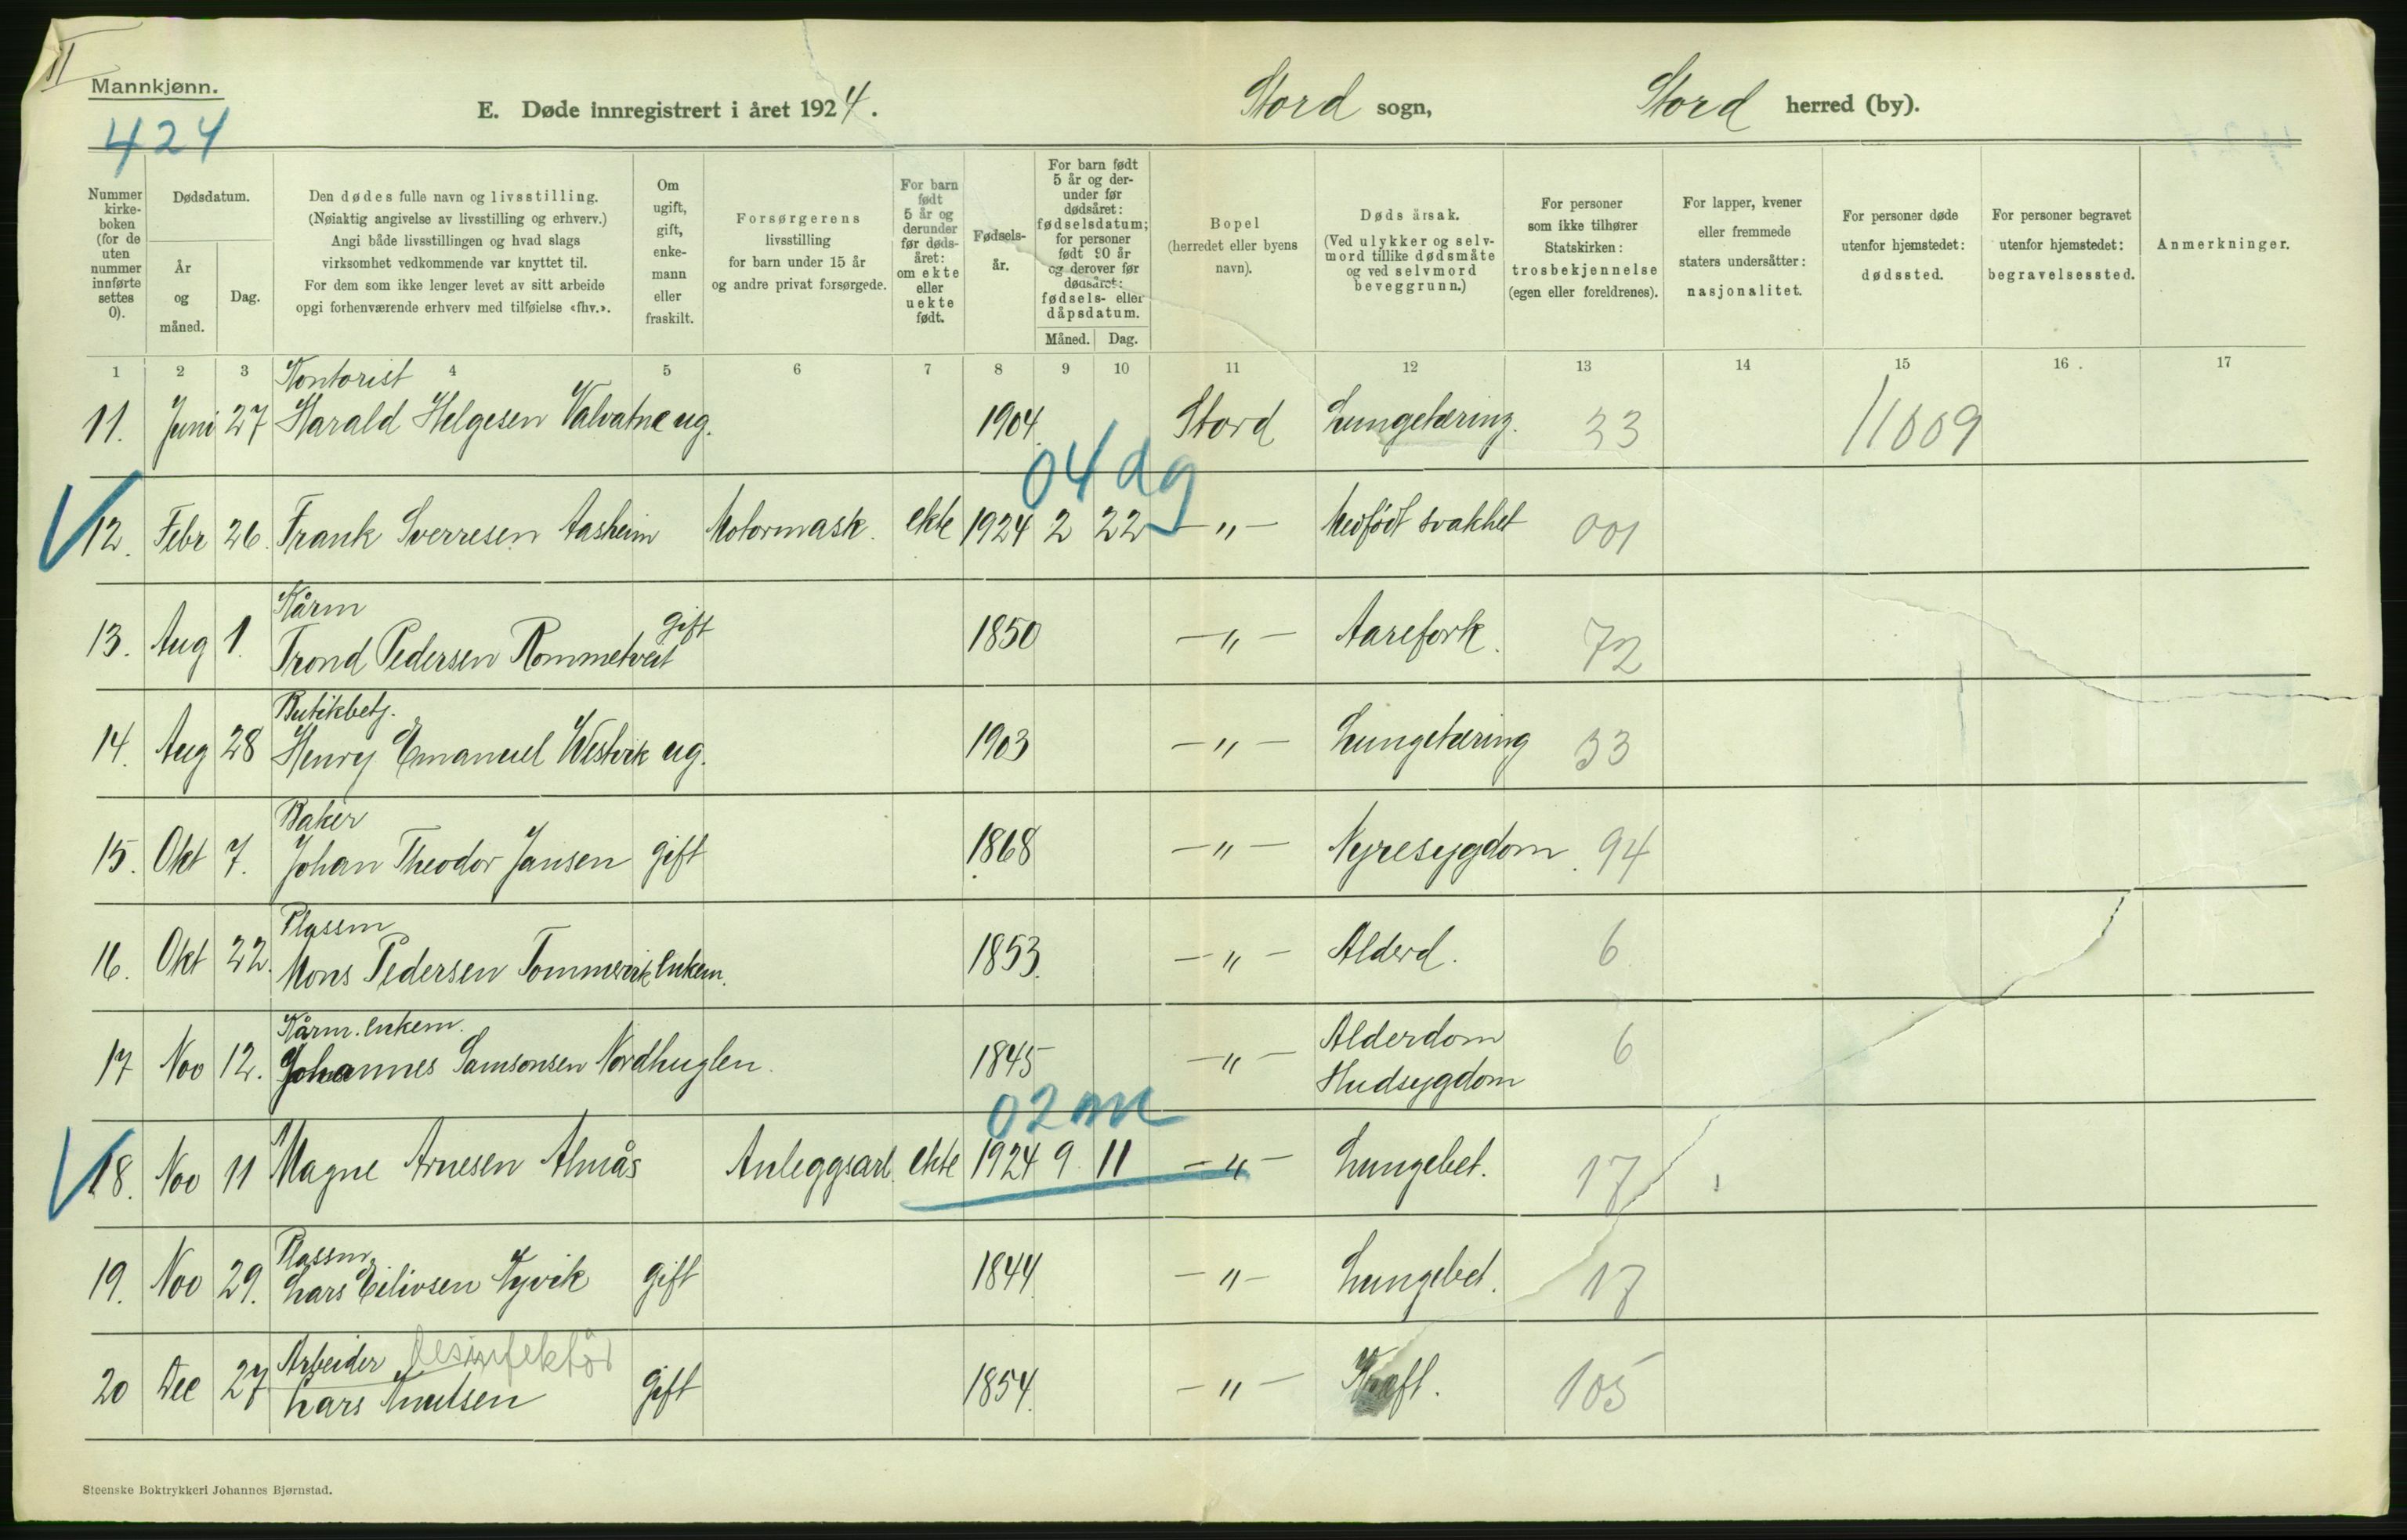 II
Mannkjønn.
424
E. Døde innregistrert i året 1924.
Stord sogn, Stord herred (by).
Nummer kirkeboken (for de uten nummer innførte settes 0).
Dødsdatum.
År og måned.
Dag.
Den dødes fulle navn og livsstilling.
(Nøiaktig angivelse av livsstilling og erhverv.)
Angi både livsstillingen og hvad slags
virksomhet vedkommende var knyttet til.
For dem som ikke lenger levet av sitt arbeide
opgi forhenværende erhverv med tilføielse «fhv.».
Om ugift, gift, enkemann eller fraskilt.
Forsørgerens
livsstilling
for barn under 15 år
og andre privat forsørgede.
For barn født 5 år og derunder før dødsåret: om ekte eller uekte født.
Fødselsår.
For barn født 5 år og derunder før dødsåret: fødselsdatum; for personer født 90 år og derover før dødsåret: fødsels- eller dåpsdatum.
Måned. Dag.
Bopel
(herredet eller byens
navn).
Dødsårsak.
(Ved ulykker og selvmord tillike dødsmåte og ved selvmord beveggrunn.)
For personer
som ikke tilhører
Statskirken:
trosbekjennelse
(egen eller foreldrenes).
For lapper, kvener
eller fremmede
staters undersåtter:
nasjonalitet.
For personer døde
utenfor hjemstedet:
dødssted.
For personer begravet
utenfor hjemstedet:
begravelsessted.
Anmerkninger.
1 2 3 4 5 6 7 8 9 10 11 12 13 14 15 16 . 17
Kontorist
11. Juni 27 Harald Helgesen Valvatne ug. 1904. Stord Lungetæring. 33 11009
04 dg
12. Febr 26. Frank Sverresen Aasheim Motormask. ekte 1924 2 22 -"- Medfødt svakhet 001
Kårm
13. Aug 1. Trond Pedersen Rommetveit gift 1850 -"- Aarefork. 72
Butikbetj.
14. Aug 28 Henry Emanuel Westvik ug. 1903 -"- Lungetæring 33
Baker
15. Okt 7. Johan Theodor Jansen gift 1868 -"- Nyresygdom. 94
Plassm
16. Okt 22. Mons Pedersen Tommervik Enkem. 1853. -"- Alderd. 6
Kårm. Enkem.
17 Nov 12. Johannes Samsonsen Nordhuglen. 1845 -"- Alderdom 6
Hudsygdom
02 m
18. Nov 11 Magne Arnesen Almås Anleggsarb. ekte 1924 9 11 -"- Lungebet. 17
Plassm
19. Nov 29. Lars Eilivsen Tyvik gift 1844. -"- Lungebet. 17
Arbeider desinfektør
20 Dec 27 Lars Knutsen gift 1854. -"- Kræft. 105
Steenske Boktrykkeri Johannes Bjørnstad.